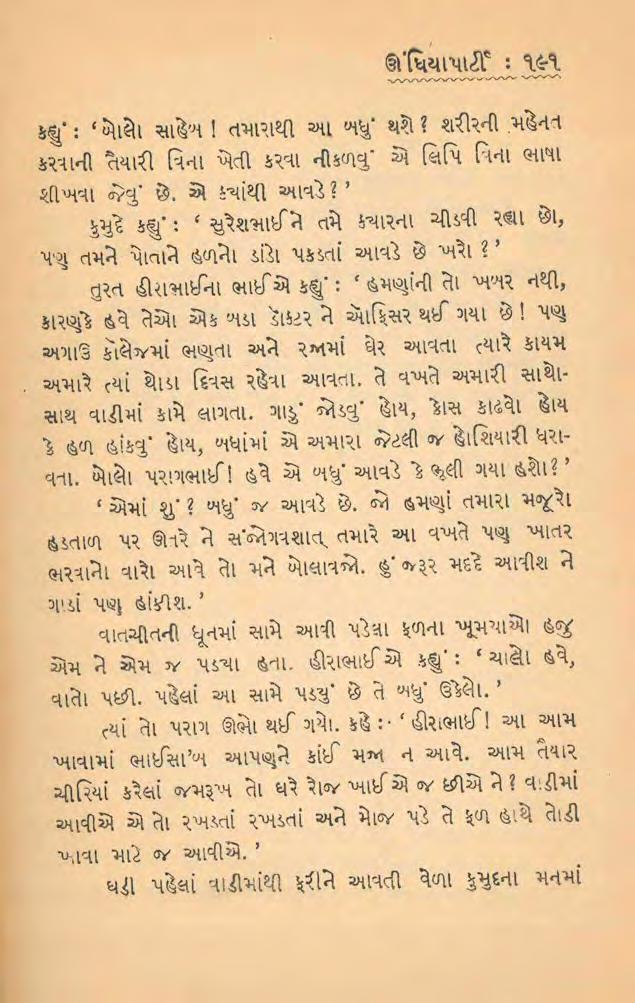 ઊંધિયાપાર્ટી : ૧૯૧
કહ્યું : ‘બોલો સાહેબ ! તમારાથી આ બધું થશે ? શરીરની મહેનત
કરવાની તૈયારી વિના ખેતી કરવા નીકળવું એ લિપિ વિના ભાષા
શીખવા જેવું છે. એ ક્યાંથી આવડે ?’
કુમુદે કહ્યું : ‘ સુરેશભાઈને તમે ક્યારના ચીડવી રહ્યા છો,
પણ તમને પોતાને હળનો ડાંડો પકડતાં આવડે છે ખરો ?’
તુરત હીરાભાઈના ભાઈએ કહ્યું : ‘ હમણાંની તો ખબર નથી,
કારણકે હવે તેઓ એક બડા ડૉક્ટર ને ઑફિસર થઈ ગયા છે ! પણ
અગાઉ કૉલેજમાં ભણતા અને રજામાં ઘેર આવતા ત્યારે કાયમ
અમારે ત્યાં થોડા દિવસ રહેવા આવતા. તે વખતે અમારી સાથો-
સાથ વાડીમાં કામે લાગતા. ગાડું જોડવું હોય, કોસ કાઢવો હોય
કે હળ હાંકવું હોય, બધાંમાં એ અમારા જેટલી જ હોશિયારી ધરા-
વતા. બોલો પરાગભાઈ ! હવે એ બધું આવડે કે ભૂલી ગયા હશો ?’
‘ એમાં શું ? બધું જ આવડે છે. જો હમણાં તમારા મજૂરો
હડતાળ પર ઊતરે ને સંજોગવશાત્ તમારે આ વખતે પણ ખાતર
ભરવાનો વારો આવે તો મને બોલાવજો. હું જરૂર મદદે આવીશ ને
ગાડાં પણ હાંકીશ. ’
વાતચીતની ધૂનમાં સામે આવી પડેલા ફળના ખૂમચાઓ હજુ
એમ ને એમ જ પડયા હતા. હીરાભાઈએ કહ્યું : ‘ ચાલો હવે,
વાતો પછી. પહેલાં આ સામે પડયું છે તે બધું ઉકેલો. ’
ત્યાં તો પરાગ ઊભો થઈ ગયો. કહે : ‘ હીરાભાઈ ! આ આમ
ખાવામાં ભાઈસા’બ આપણને કાંઈ મજા ન આવે. આમ તૈયાર
ચીરિયાં કરેલાં જમરૂખ તો ઘરે રોજ ખાઈએ જ છીએ ને ? વાડીમાં
આવીએ એ તો રખડતાં રખડતાં અને મોજ પડે તે ફળ હાથે તોડી
ખાવા માટે જ આવીએ. ’
ઘડી પહેલાં વાડીમાંથી ફરીને આવતી વેળા કુમુદના મનમાં